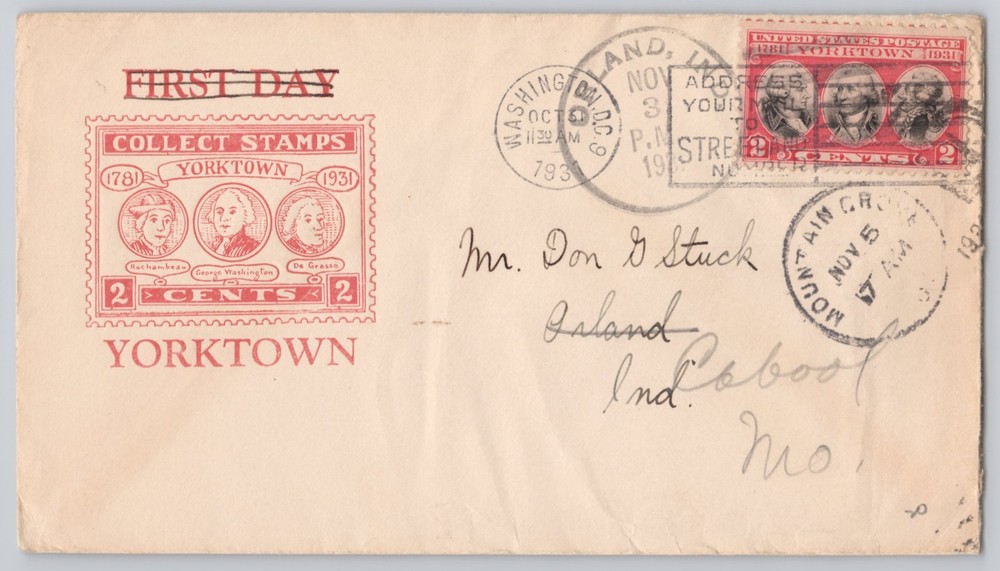 FIRST DAY
COLLECT STAMPS
YORKTOWN
1781 1931
Rochambeau George Washington De Grasse
2 CENTS 2
YORKTOWN
WASHINGTON, D.C. 9
OCT 3
11 30 AM
193
LAND, IND
NOV
3
P.M.
193
ADDRESS
YOUR
TO
STREET
NO
UNITED STATES POSTAGE
1781 YORKTOWN 1931
2 CENTS 2
MOUNTAIN GROVE
NOV 5
7 AM
193
Mr. Don G Stuck
Island
Ind. Cabool
Mo.